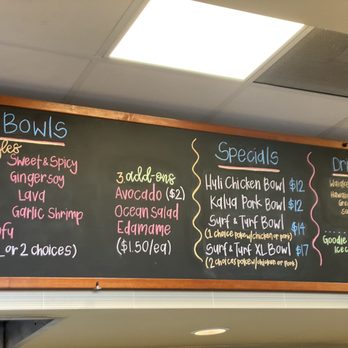 Bowls
Sweet & Spicy
Ginger soy
Lava
Garlic Shrimp
or 2 choices)
3 add-ons
Avocado ($2)
Ocean Salad
Edamame
($1.50/ea)
Specials
Huli Chicken Bowl $12
Kalua Pork Bowl $12
Surf & Turf Bowl $14
(1 choice poke w/chicken or pork)
Surf & Turf XL Bowl $17
(2 choices poke w/chicken or pork)
Goodie